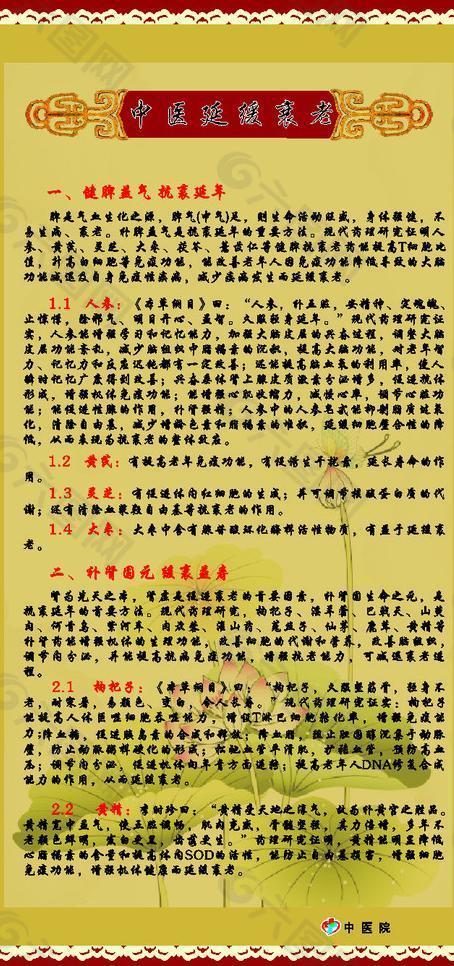 中医延缓衰老
一、健脾益气 抗衰延年
脾是气血生化之源，脾气(中气)足，则生命活动旺盛，身体强健，不
易生病、衰老。补脾益气是抗衰延年的重要方法。现代药理研究证明人
参、黄芪、灵芝、大枣、茯苓、薏苡仁等健脾抗衰老药能提高T细胞比
值，升高白细胞等免疫功能，能改善老年人因免疫功能降低导致的大脑
功能减退及自身免疫性疾病，减少疾病发生而延缓衰老。
1.1 人参：《本草纲目》曰：“人参，补五脏，安精神，定魂魄，
止惊悸，除邪气，明目开心，益智。久服轻身延年。”现代药理研究证
实，人参能增强学习和记忆能力，加强大脑皮层的兴奋过程，调整大脑
皮层功能紊乱，减少脑组织中脂褐素的沉积，提高大脑功能，对老年智
力、记忆力和反应迟钝都有一定改善；还能提高脑血氧的利用率，使人
瞬时记忆广度得到改善；兴奋垂体肾上腺皮质激素分泌增多，促进抗体
形成，增强机体免疫功能；能增强心肌收缩力，减慢心率，调节心脏功
能；能促进性腺的作用，补肾强精；人参中的人参皂甙能抑制脂质过氧
化，清除自由基，减少增龄色素和脂褐素的堆积，延缓细胞萎合性的降
低，从而表现为抗衰老的整体效应。
1.2 黄芪：有提高老年免疫功能，有促诱生干扰素，延长寿命的作
用。
1.3 灵芝：有促进体内红细胞的生成；并可调节核酸蛋白质的代
谢；还有清除血浆自由基等抗衰老的作用。
1.4 大枣：大枣中含有腺苷酸环化酶样活性物质，有益于延缓衰
老。
二、补肾固元 缓衰益寿
肾为先天之本，肾虚是促进衰老的首要因素，补肾固生命之元，是
抗衰延年的首要方法。现代药理研究，枸杞子、淫羊藿、巴戟天、山萸
肉、何首乌、紫河车、肉苁蓉、淮山药、菟丝子、仙茅、鹿茸、黄精等
补肾药能增强机体的生理功能，改善细胞的代谢和营养，改善脑组织，
调节内分泌，并能提高抗病免疫功能，增强抗老能力，可减退衰老进
程。
2.1 枸杞子：《本草纲目》曰：“枸杞子，久服坚筋骨，轻身不
老，耐寒暑，易颜色、变白，令人长寿。”现代药理研究证实：枸杞子
能提高人体巨噬细胞吞噬能力，增促T淋巴细胞转化率，增强免疫能
力；降血糖，促进胰岛素的合成和释放；降血脂，阻止胆固醇沉集于动脉
壁，防止动脉粥样硬化的形成；松弛血管平滑肌，扩张血管，预防高血
压；调节内分泌，促进机体向年青方面逆转；提高老年人DNA修复合成
能力的作用，从而延缓衰老。
2.2 黄精：李时珍曰：“黄精受天地之淳气，故为补黄宫之胜品。
黄精宽中益气，使五脏调畅，肌肉充盛，骨髓坚强，其力倍增，多年不
老颜色鲜明，发白更黑，齿落更生。”药理研究证明，黄精能明显降低
心脂褐素的含量和提高体内SOD的活性，能防止自由基损害，增强细胞
免疫功能，增强机体健康而延缓衰老。
中医院